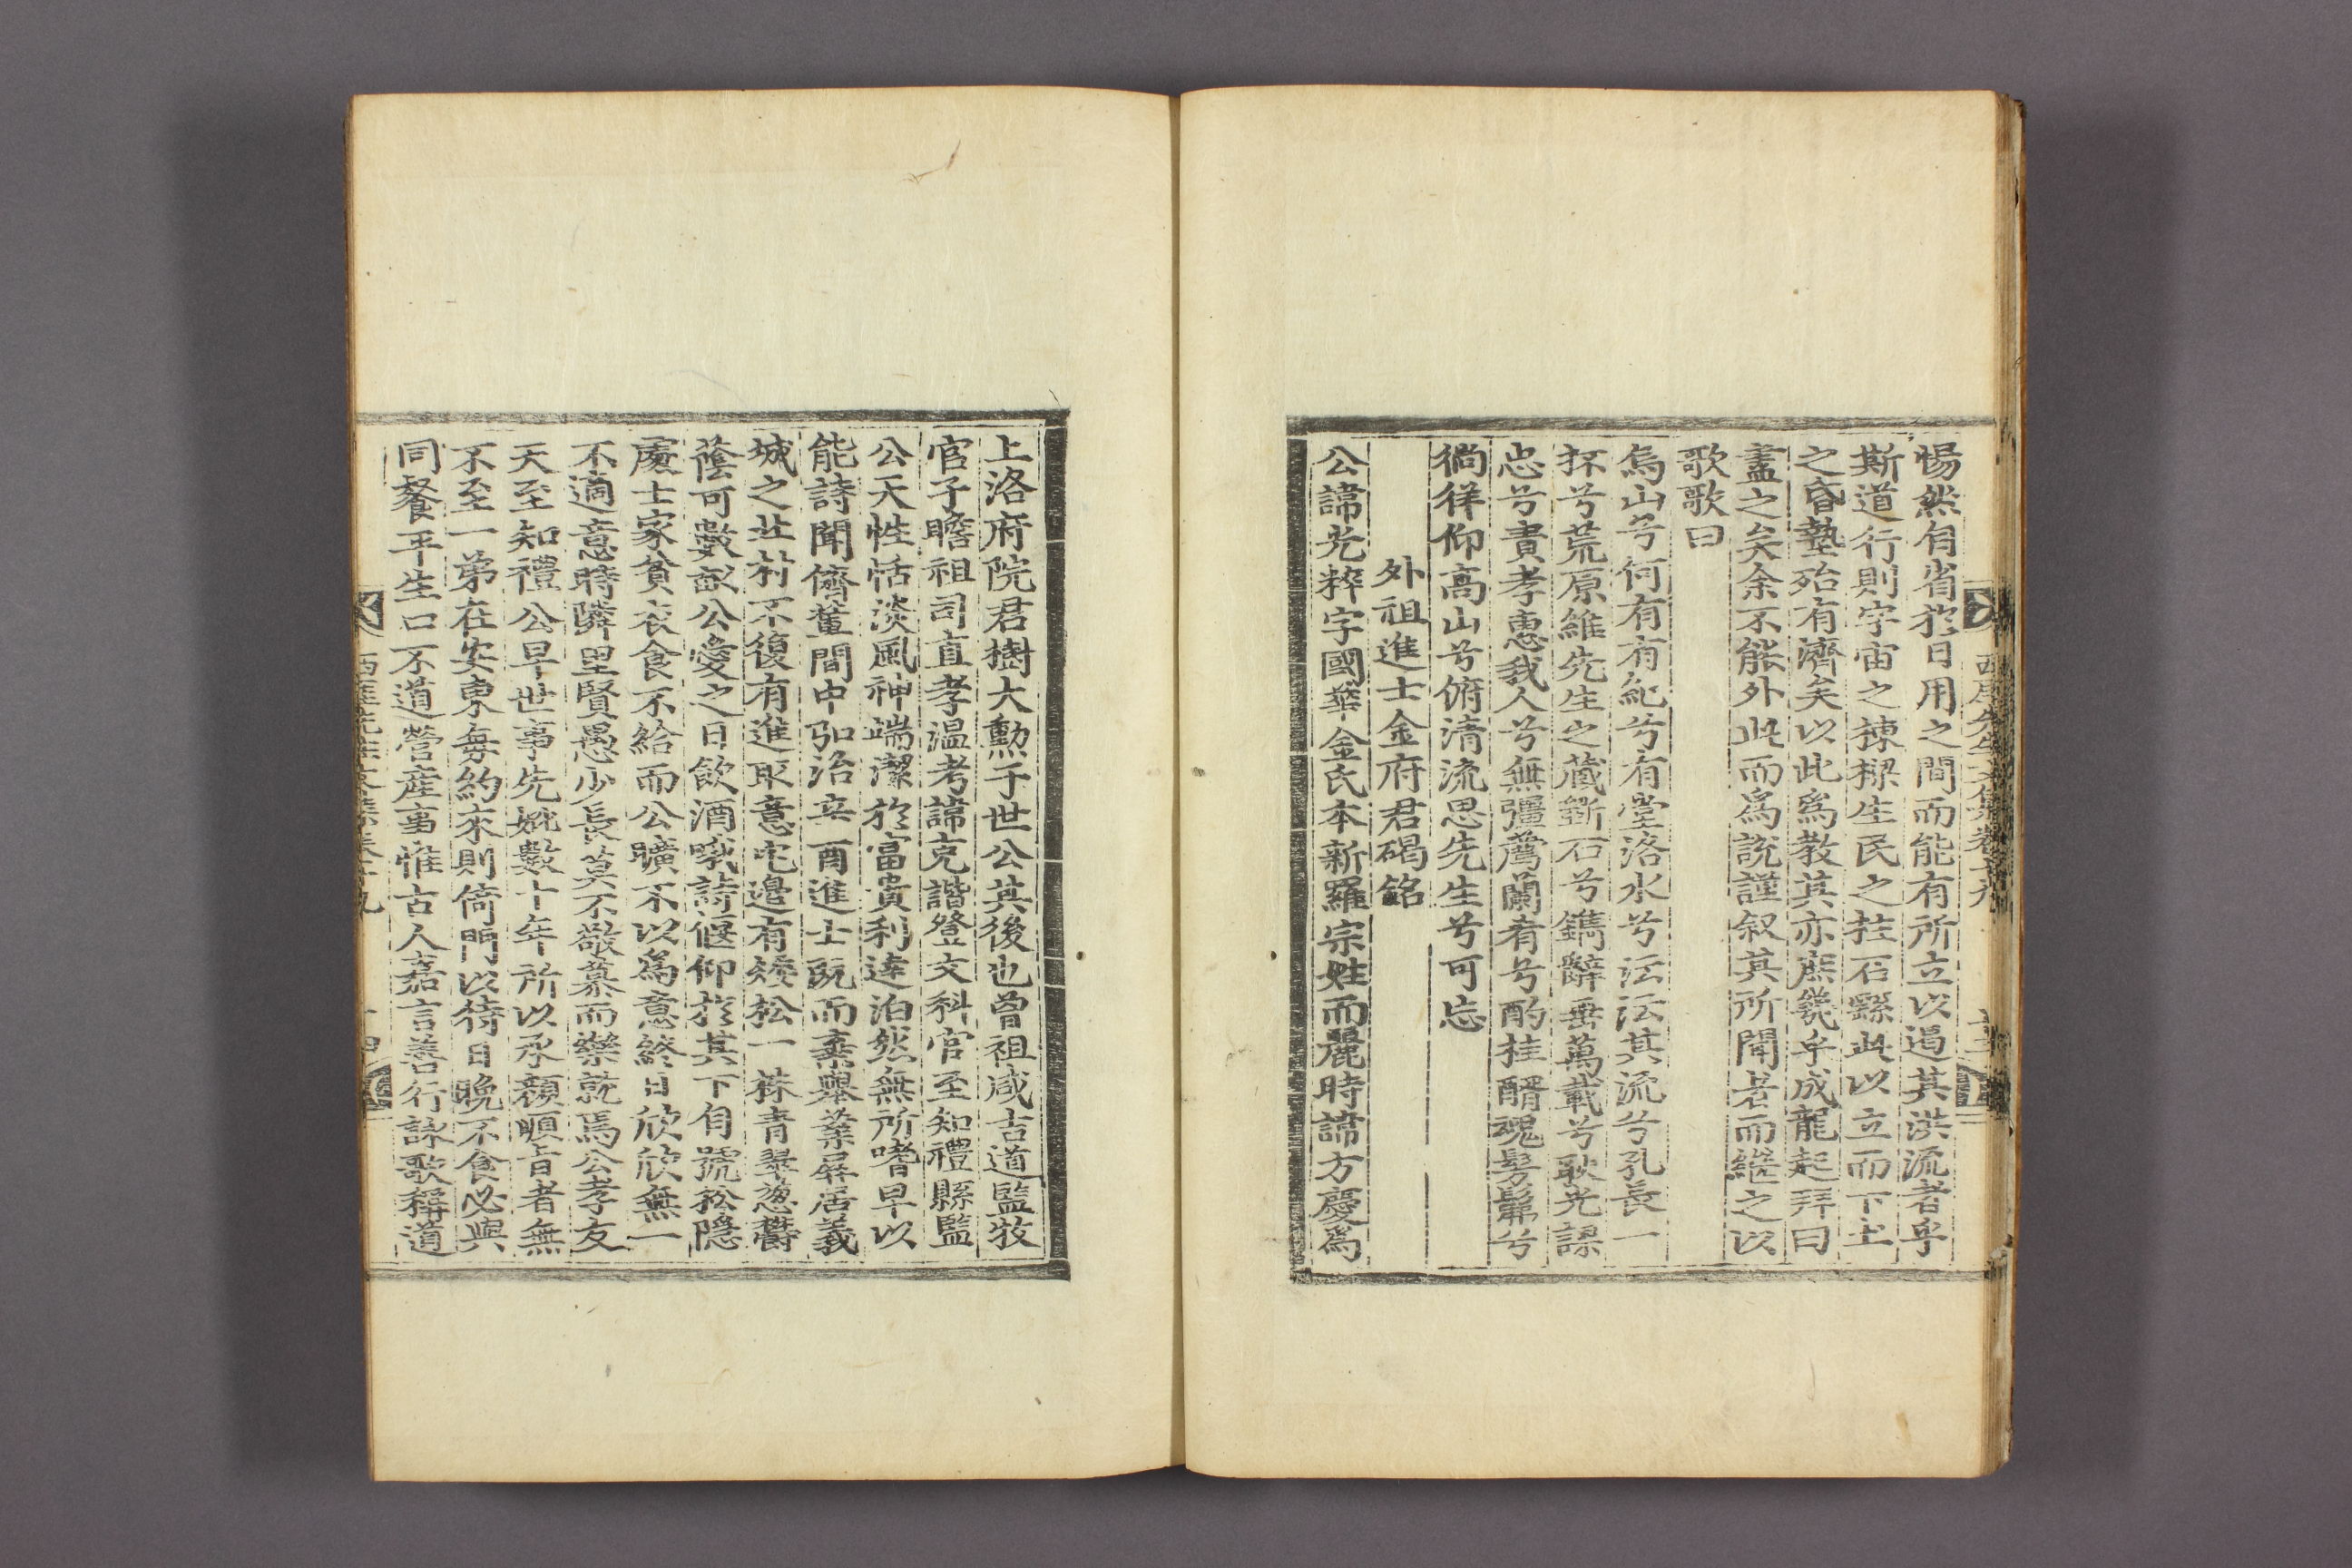 惕然有省於日用之間而能有所立以遏其洪流者乎
斯道行則宇宙之棟樑生民之柱石繇此以立而下土
之昏墊殆有濟矣以此爲教其亦庶幾乎成龍起拜曰
盡之矣余不能外此而爲說謹叙其所聞者而繼之以
歌歌曰
烏山兮何有有紀兮有堂洛水兮沄沄其流兮孔長一
抔兮荒原維先生之藏斲石兮鐫辭垂萬載兮耿光謖
忠兮賁孝惠我人兮無彊薦蘭肴兮酌桂醑魂髣髴兮
徜徉仰高山兮俯清流思先生兮可忘
外祖進士金府君碣銘
公諱光粹字國華金氏本新羅宗姓而麗時諱方慶爲
西厓先生文集卷十九
上洛府院君樹大勳于世公其後也曾祖咸吉道監牧
官子瞻祖司直孝温考諱克諧登文科官至知禮縣監
公天性恬淡風神端潔於富貴利達泊然無所嗜早以
能詩聞儕輩間中弘治辛酉進士旣而棄擧業屛居義
城之北村不復有進取意宅邊有矮松一株青翠葱欝
蔭可數畝公愛之日飲酒哦詩偃仰於其下自號松隱
處士家貧衣食不給而公曠不以爲意終日欣欣無一
不適意時隣里賢愚少長莫不敬慕而樂就焉公孝友
天至知禮公早世事先妣數十年所以承顔順旨者無
不至一弟在安東每約來則倚門以待日晚不食必與
同餐平生口不道營産事惟古人嘉言善行詠歌稱道
西厓先生文集卷十九
十四